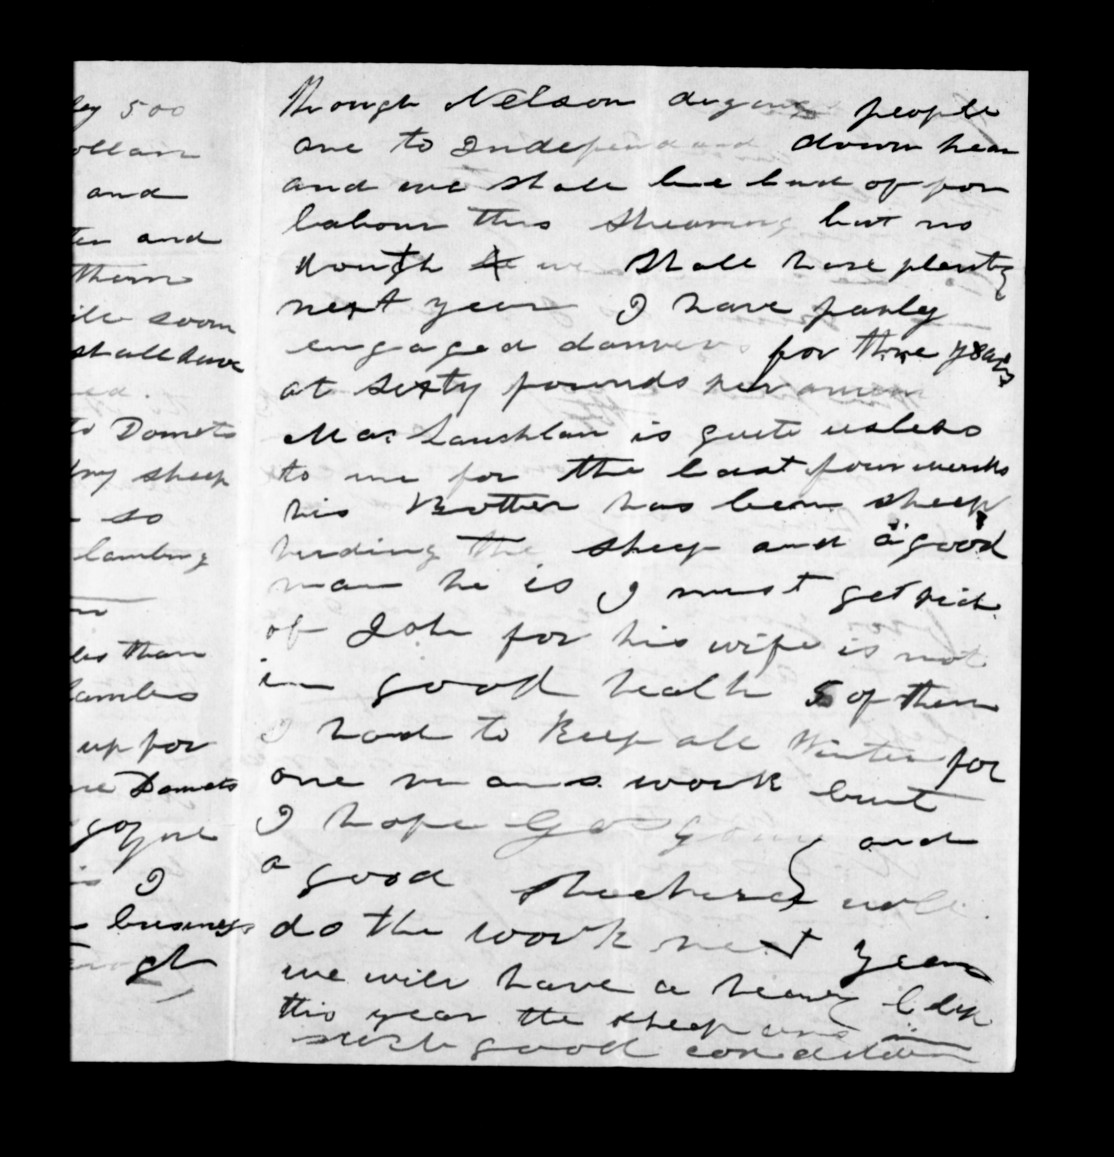 ley 500
ollars
and
ter and
them
ile soon
shall have
ed.
to Domets
dry sheep
so
lambing
les than
lambs
up for
Domets
go
is I
business
gh
through Nelson people
are to Independand down hear
and we shall be bad of for
labour this Shearing but no
douth we Shall have planty
next year I have parly
engaged for three years
at sexty pounds per anum
MacLauchlan is quite usless
to me for the last four weeks
his Brother has been sheep
herding the sheep and a good
man he is I must get rid
of Joh for his wife is not
in good health 5 of them
I had to Keep all Winter for
one mans work but
I hope and
a good will
do the work next year
we will have a heavy Clip
this year the sheep are in
such good condition